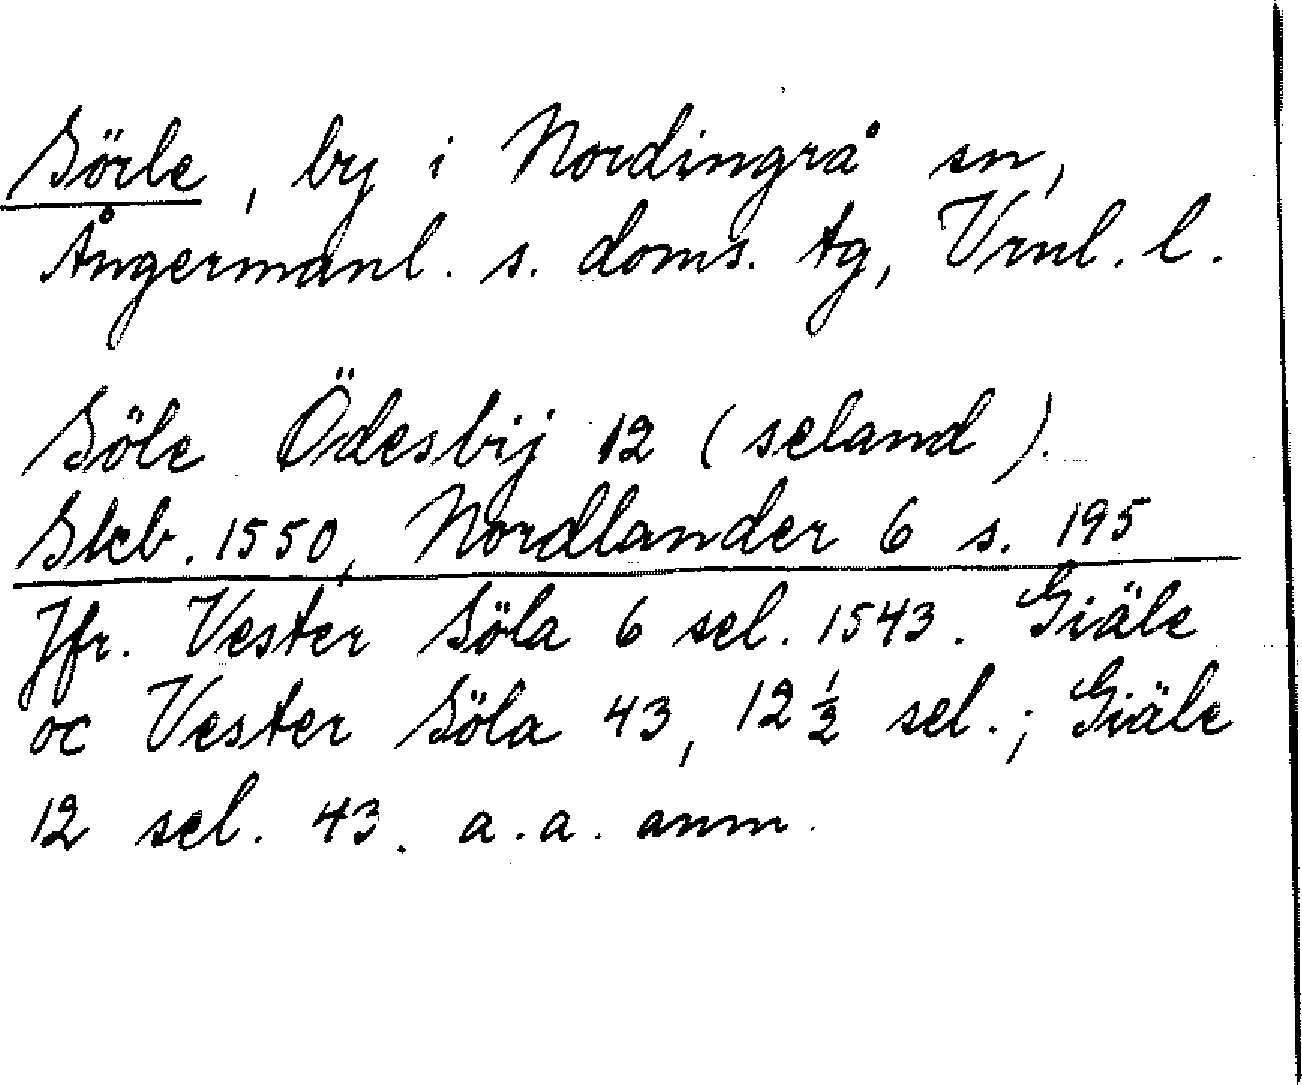 Sörle, by i Nordingrå sn,
Ångermanl. s. doms. tg, Vrnl. l.
Söle Ödesbij 12 (seland).
Skb. 1550, Nordlander 6 s. 195
Jfr. Vester Söla 6 sel. 1543. Giäle
oc Vester Söla 43, 12 1/2 sel.; Giäle
12 sel. 43. a.a. anm.